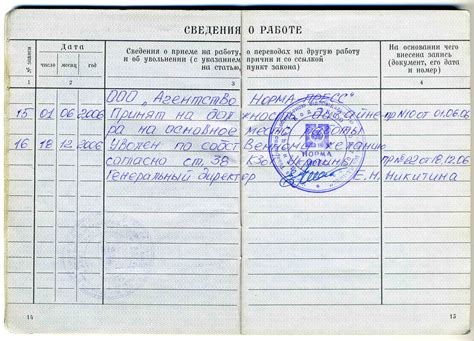 СВЕДЕНИЯ О РАБОТЕ
№ записи
Дата
Сведения о приеме на работу, о переводах на другую работу и об увольнении (с указанием причин и со ссылкой на статью, пункт закона)
На основании чего внесена запись (документ, его дата и номер)
число месяц год
1 2 3 4
ООО „Агентство НОРМА-ПРЕСС“
15 01 06 2006 Принят на должность дизайне- пр №10 от 01.06.06
ра на основное место работы
16 18 12 2006 Уволен по собственному желанию
согласно ст. 38 КЗоТ Украины пр №82 от 18.12.06
Генеральный директор Е.Н. Никитина
НОРМА
14 15